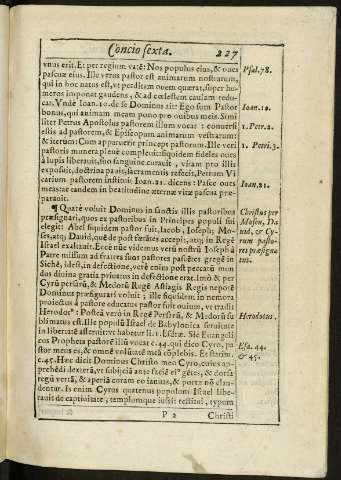 Concio sexta. 227
vnus erit. Et per regium vatē: Nos populus eius, & oues
pascuæ eius. Ille verus pastor est animarum nostrarum,
qui in hoc natus est, vt perditam ouem quærat, super hu-
meros imponat gaudens, & ad cœlestem caulam redu-
cat. Vnde Ioan. 10. de se Dominus ait: Ego sum Pastor
bonus, qui animam meam pono pro ouibus meis. Simi
liter Petrus Apostolus pastorem illum vocat: conuersi
estis ad pastorem, & Episcopum animarum vestrarum:
& iterum: Cum apparuerit princeps pastorum. Ille veri
pastoris munera plenè compleuit: siquidem fideles oues
à lupis liberauit, suo sanguine curauit, vitam pro illis
exposuit, doctrina pauit, sacramentis refecit, Petrum Vi
carium pastorem instituit Ioan. 21. dicens: Pasce oues
meas: tandem in beatitudine æternæ vitæ pascua præ-
parauit.
¶ Quare voluit Dominus in sanctis illis pastoribus
præsignari, quos ex pastoribus in Principes populi sui
elegit: Abel siquidem pastor fuit, Iacob, Ioseph, Moy-
ses, atq; Dauid, quē de post fœtātes accepit, atq; in Regē
Israel exaltauit. Ecce nūc videmus verū nostrū Ioseph à
Patre missum ad fratres suos pastores pascētes gregē in
Sichē, idest, in defectione, verè enim post peccatū mun
dus diuina gratia priuatus in defectione erat. Imò & per
Cyrū Persarū, & Medorū Regē Astiagis Regis nepotē
Dominus præfigurari voluit; ille siquidem in nemora
proiectus à pastore educatus pastor fuit ouium, vt tradit
Herodotᵒ: Posteà verò in Regē Persarū, & Medorū su
blimatus est. Ille populū Israel de Babylonica seruitute
in libertatē asseruit: vt habetur li. 1. Esdræ. Sic Euangeli
cus Propheta pastorē illū vocat c. 44. qui dico Cyro, pa
stor meus es, & omnē volūtatē meā cōplebis. Et statim
c. 45. Hæc dicit Dominus Christo meo Cyro, cuius ap-
prehēdi dexterā, vt subijciā ante faciē eiᵒ gētes, & dorsa
regū vertā, & aperiā coram eo ianuas, & portæ nō clau
dentur. Is enim Cyrus quatenus populum Israel libe-
rauit de captiuitate, templumque iussit restitui, typum
P 2 Christi
Psal. 78.
Ioan. 10.
1. Petr. 2.
1. Petri. 5.
Ioan. 21.
Christus per
Moysen, Da
uid, & Cy-
rum pasto-
res præsigna
tus.
Herodotus.
Esa. 44.
& 45.